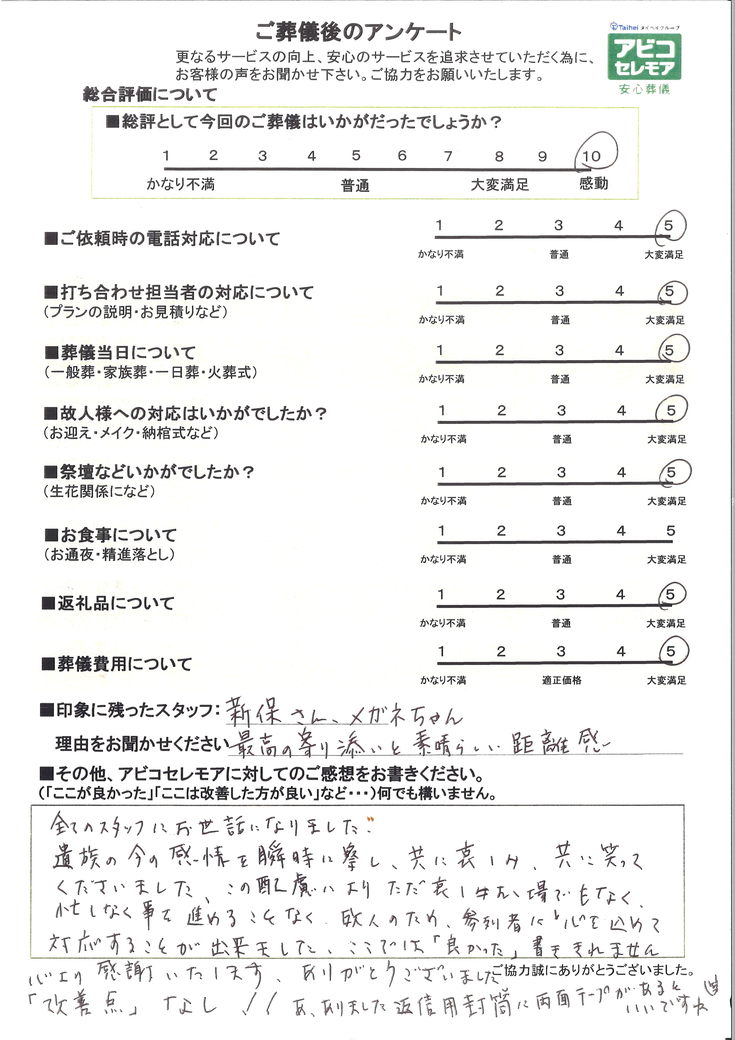 ご葬儀後のアンケート
Taihei タイヘイグループ
アビコ
セレモア
安心葬儀
更なるサービスの向上、安心のサービスを追求させていただく為に、
お客様の声をお聞かせ下さい。ご協力をお願いいたします。
総合評価について
■総評として今回のご葬儀はいかがだったでしょうか？
1 2 3 4 5 6 7 8 9 10
かなり不満 普通 大変満足 感動
■ご依頼時の電話対応について
1 2 3 4 5
かなり不満 普通 大変満足
■打ち合わせ担当者の対応について
(プランの説明・お見積りなど)
1 2 3 4 5
かなり不満 普通 大変満足
■葬儀当日について
(一般葬・家族葬・一日葬・火葬式)
1 2 3 4 5
かなり不満 普通 大変満足
■故人様への対応はいかがでしたか？
(お迎え・メイク・納棺式など)
1 2 3 4 5
かなり不満 普通 大変満足
■祭壇などいかがでしたか？
(生花関係になど)
1 2 3 4 5
かなり不満 普通 大変満足
■お食事について
(お通夜・精進落とし)
1 2 3 4 5
かなり不満 普通 大変満足
■返礼品について
1 2 3 4 5
かなり不満 普通 大変満足
■葬儀費用について
1 2 3 4 5
かなり不満 適正価格 大変満足
■印象に残ったスタッフ：新保さん、メガネちゃん
理由をお聞かせください 最高の寄り添いと素晴らしい距離感
■その他、アビコセレモアに対してのご感想をお書きください。
(「ここが良かった」「ここは改善した方が良い」など・・・)何でも構いません。
全てのスタッフにお世話になりました。
遺族の今の感情を瞬時に察し、共に哀しみ、共に笑って
くださいました、この配慮によりただ哀しいお場でもなく、
忙しなく事を進めることなく、故人のため、参列者に心を込めて
対応することが出来ました、ここでは「良かった」書ききれません
心より感謝いたします、ありがとうございました
ご協力誠にありがとうございました。
「改善点」なし!! あ、ありました返信用封筒に両面テープがあると
いいですね